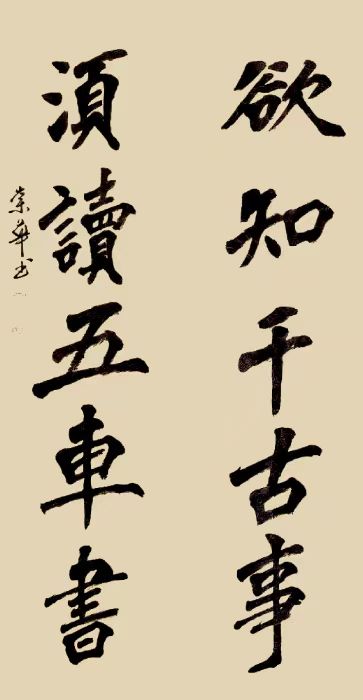 欲知千古事
須讀五車書
崇華书